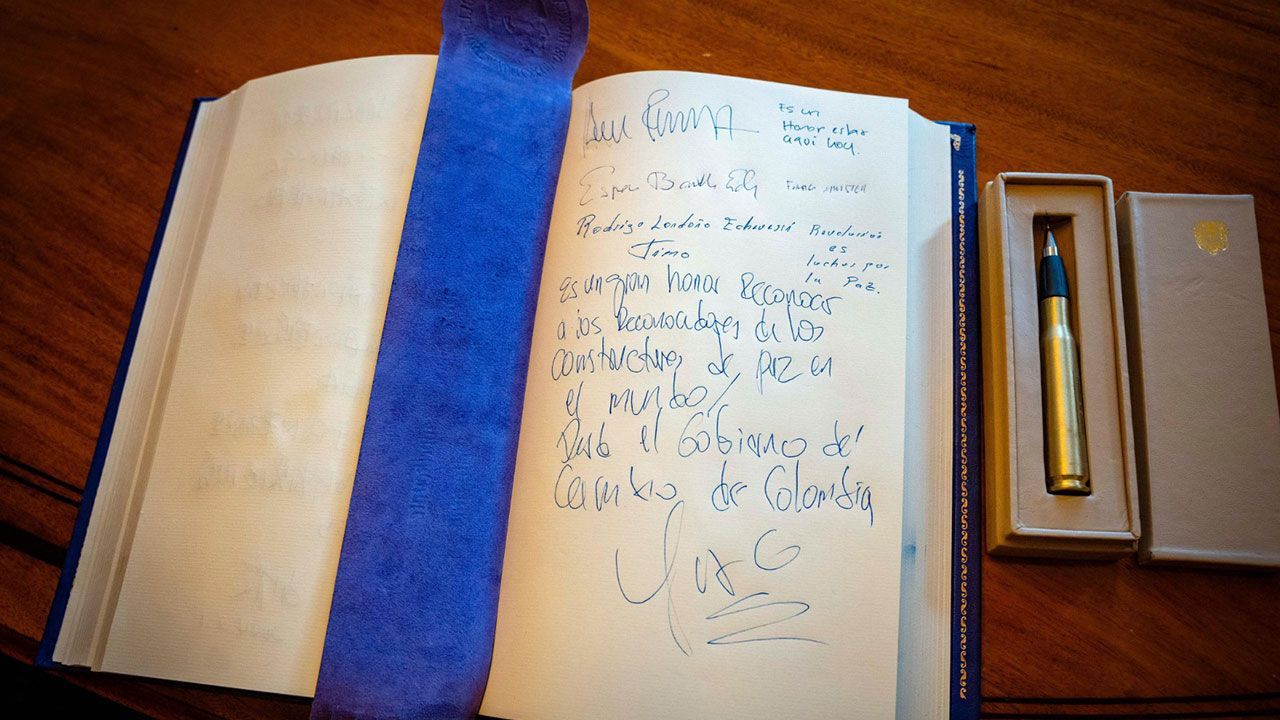 Es un
Honor estar
aquí hoy.
Espen Barth Eide
Rodrigo Londoño Echeverri
Timo
Revolución
es
luchar por
la Paz.
es un gran honor Reconocer
a los Reconocedores de los
constructores de paz en
el mundo/
Desde el Gobierno del
Cambio de Colombia